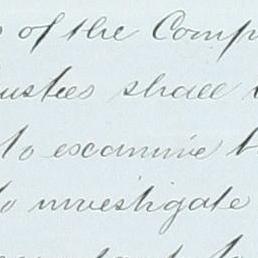 of the Comp
ustees shall
to examine t
to investigate